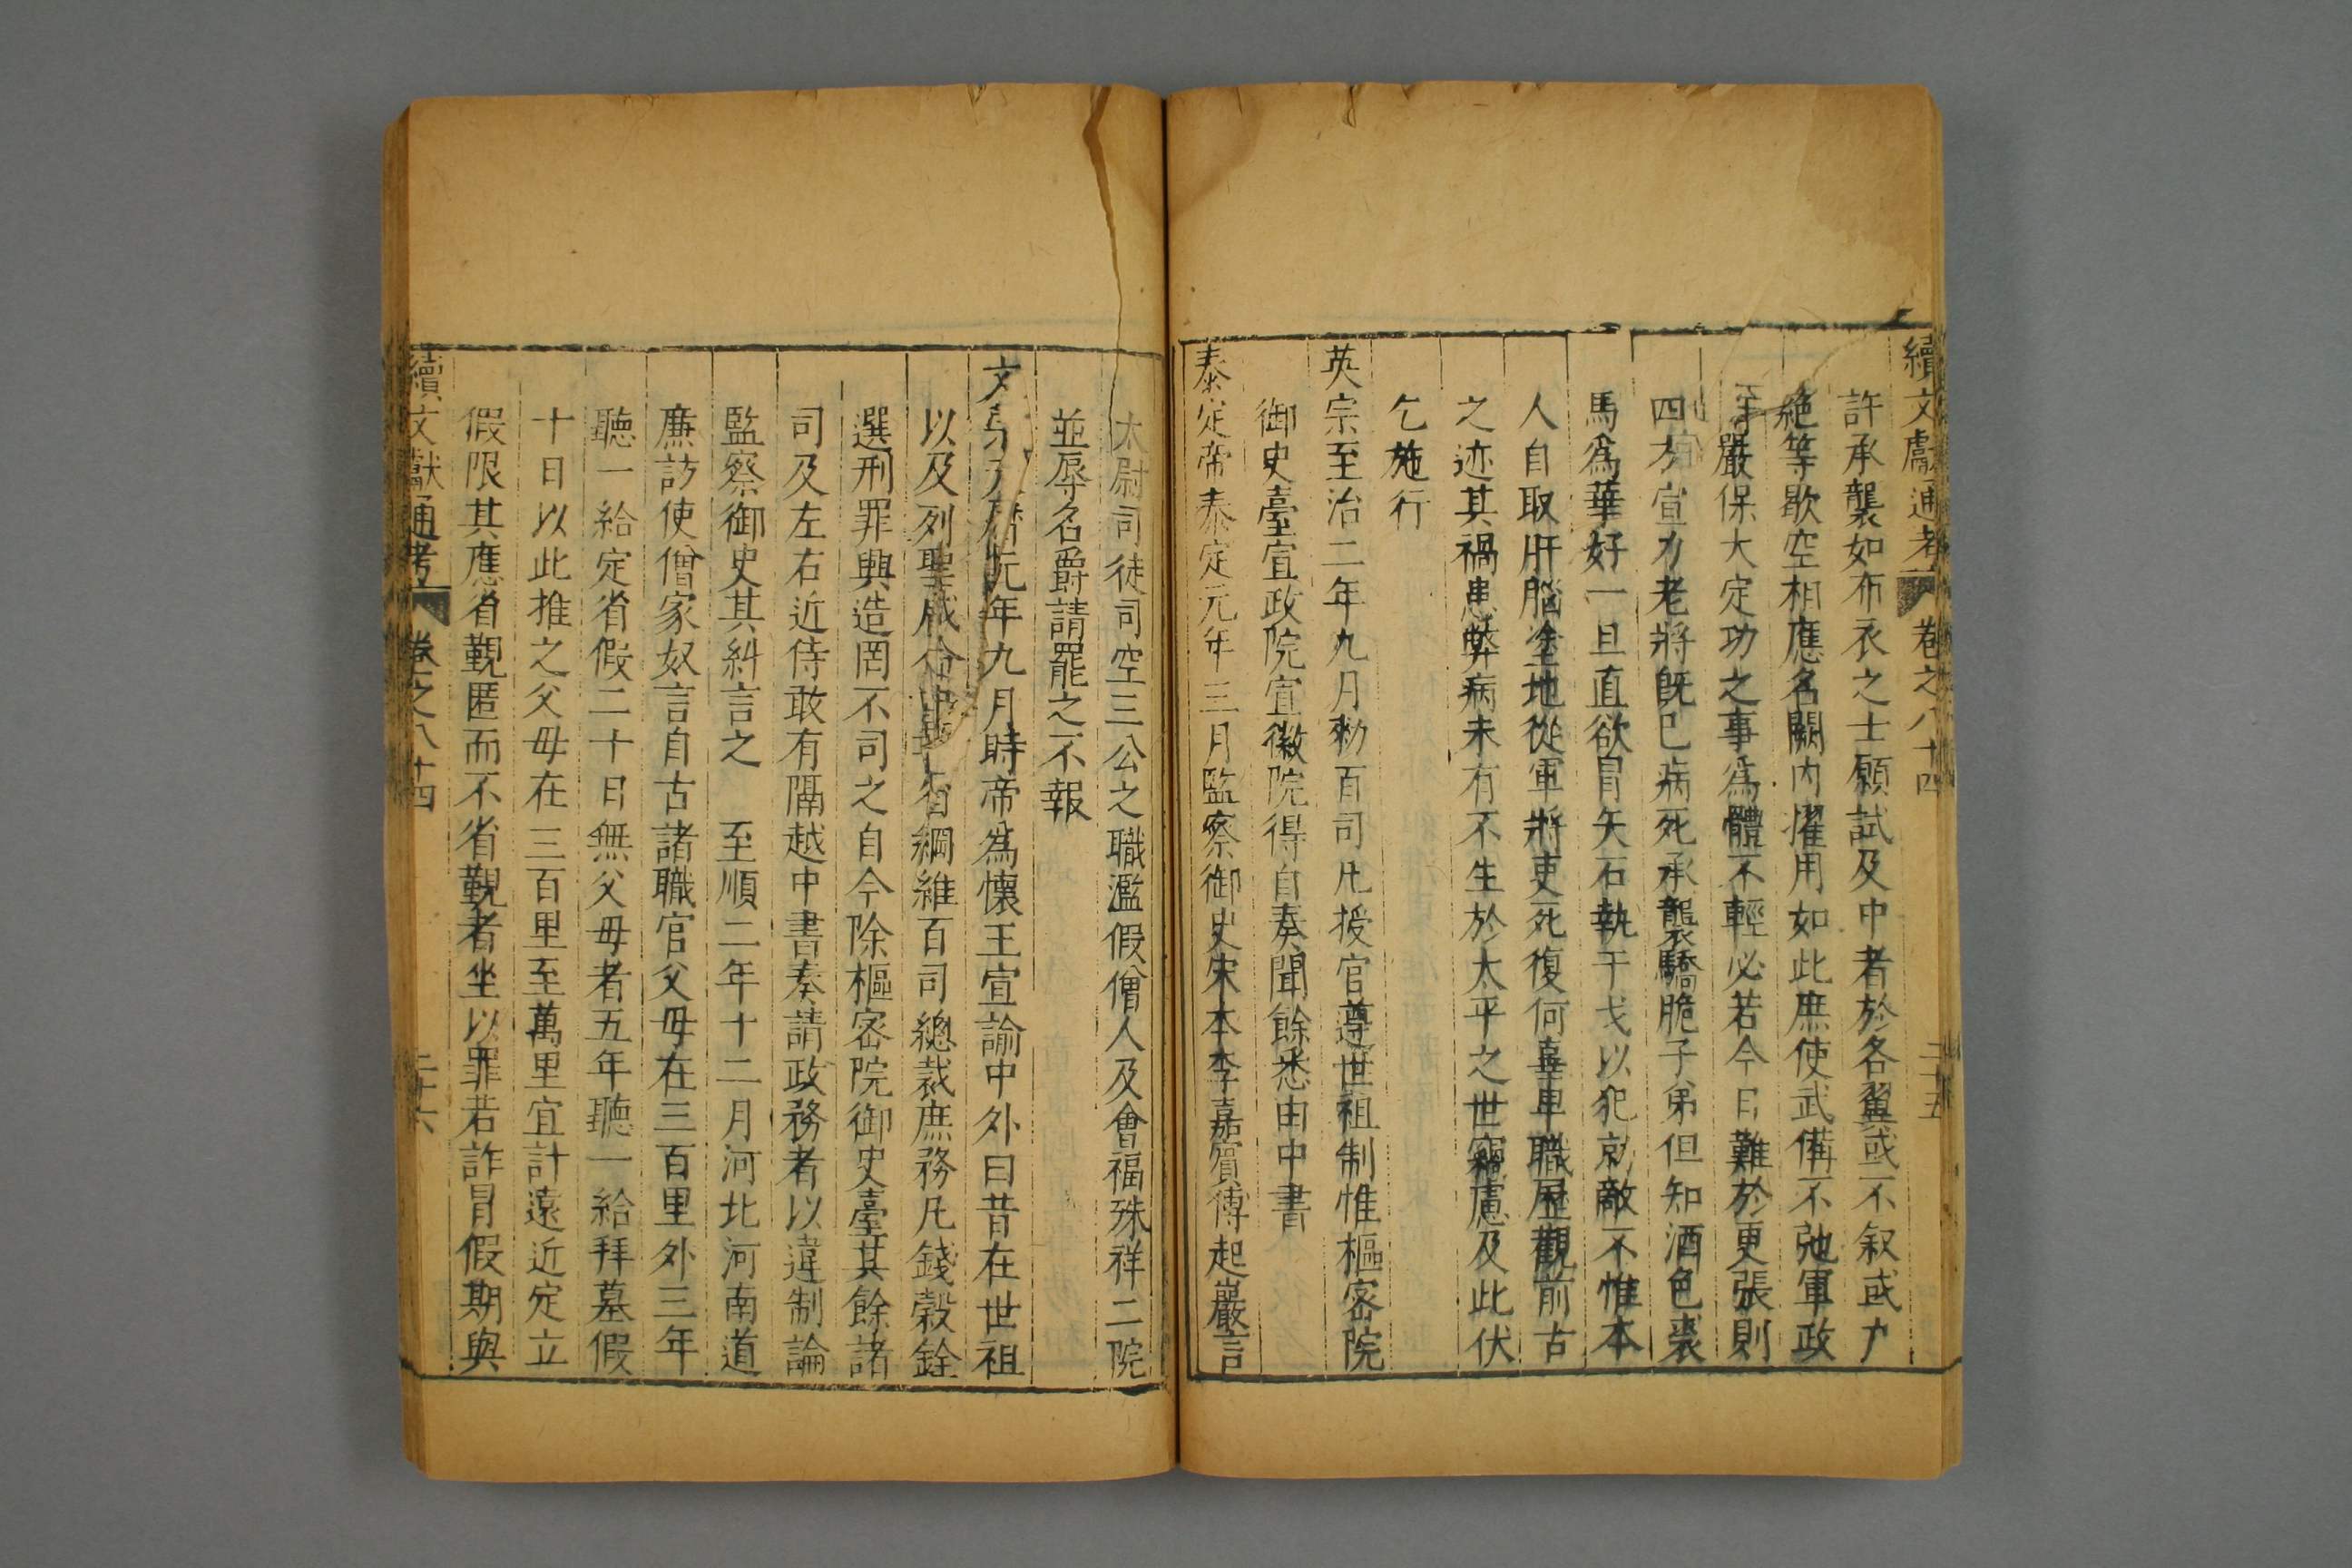 續文獻通考 卷之八十四 二十五
許承襲如布衣之士願試及中者於各翼或不叙或戶
絕等歇空相應名闕內擢用如此庶使武備不弛軍政
嚴保大定功之事爲體不輕必若今日難於更張則
四方宣力老將旣已病死承襲驕脆子弟但知酒色裘
馬爲華好一旦直欲冒矢石執干戈以犯勍敵不惟本
人自取肝腦塗地從軍將吏死復何辜耳職歷觀前古
之迹其禍患弊病未有不生於太平之世竊慮及此伏
乞施行
英宗至治二年九月勑百司凡授官遵世祖制惟樞密院
御史臺宣政院宣徽院得自奏聞餘悉由中書
泰定帝泰定元年三月監察御史宋本李嘉賓傅起巖言
太尉司徒司空三公之職濫假僧人及會福殊祥二院
並辱名爵請罷之不報
文宗天曆元年九月時帝爲懷王宣諭中外曰昔在世祖
以及列聖咸命中書省綱維百司總裁庶務凡錢穀銓
選刑罪興造罔不司之自今除樞密院御史臺其餘諸
司及左右近侍敢有隔越中書奏請政務者以違制論
監察御史其糾言之 至順二年十二月河北河南道
廉訪使僧家奴言自古諸職官父母在三百里外三年
聽一給定省假二十日無父母者五年聽一給拜墓假
十日以此推之父母在三百里至萬里宜計遠近定立
假限其應省覲匿而不省覲者坐以罪若詐冒假期與
續文獻通考 卷之八十四 二十六